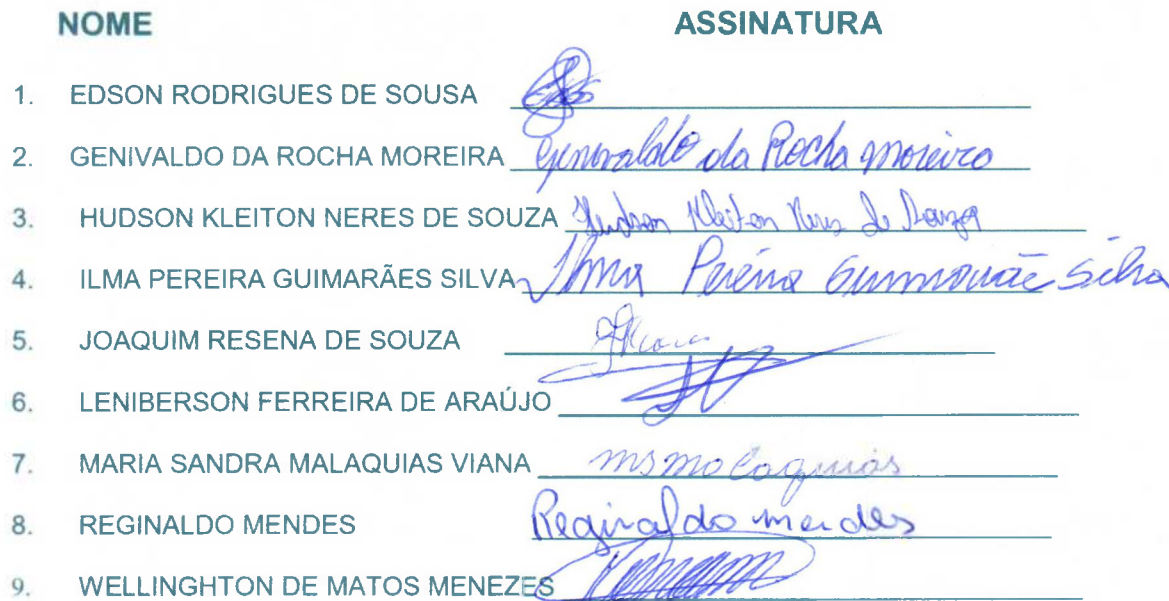 NOME ASSINATURA
1. EDSON RODRIGUES DE SOUSA
2. GENIVALDO DA ROCHA MOREIRA Genivaldo da Rocha Moreira
3. HUDSON KLEITON NERES DE SOUZA Hudson Kleiton Neres de Souza
4. ILMA PEREIRA GUIMARÃES SILVA Ilma Pereira Silva
5. JOAQUIM RESENA DE SOUZA
6. LENIBERSON FERREIRA DE ARAÚJO
7. MARIA SANDRA MALAQUIAS VIANA msmalaquias
8. REGINALDO MENDES Reginaldo mendes
9. WELLINGHTON DE MATOS MENEZES